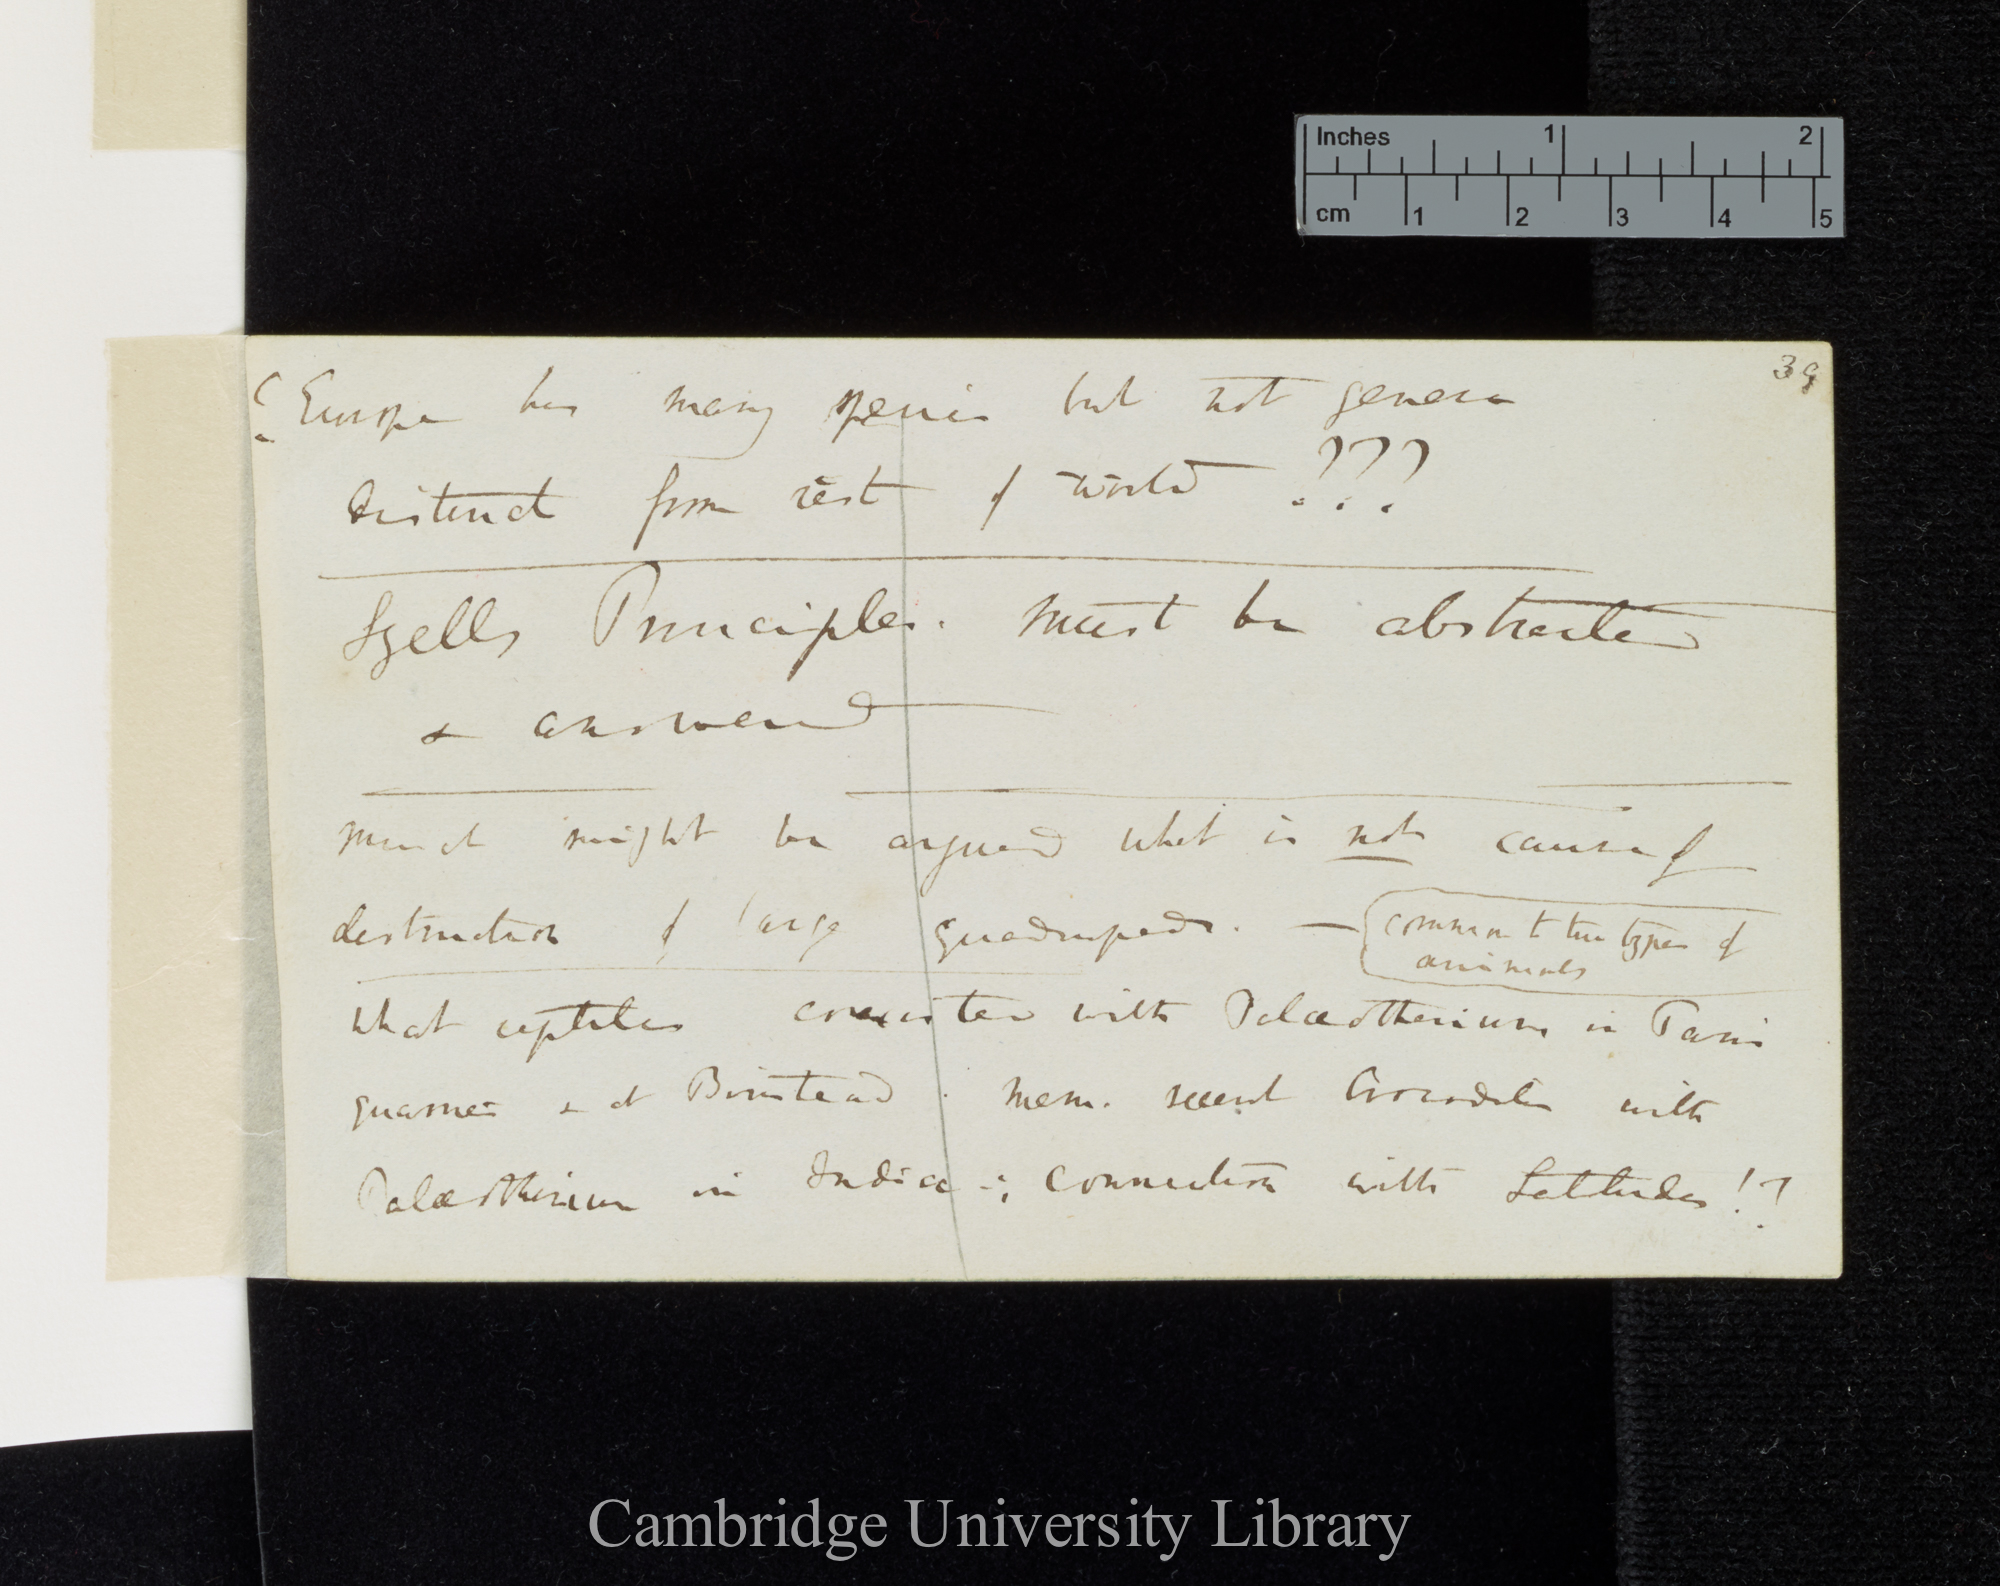 Inches 1 2
cm 1 2 3 4 5
39
¿Europe has many species but not genera
distinct from rest of world ???
Lyells Principles. must be abstracted
& answered
Much might be argued what is not cause of
destruction of large quadrupeds. —
common to two types of
animals
What reptiles coexisted with Palæotherium in Paris
quarries & at Binstead. Mem. recent Crocodile with
Palæotherium in India ∴ connection with Latitudes!?
Cambridge University Library